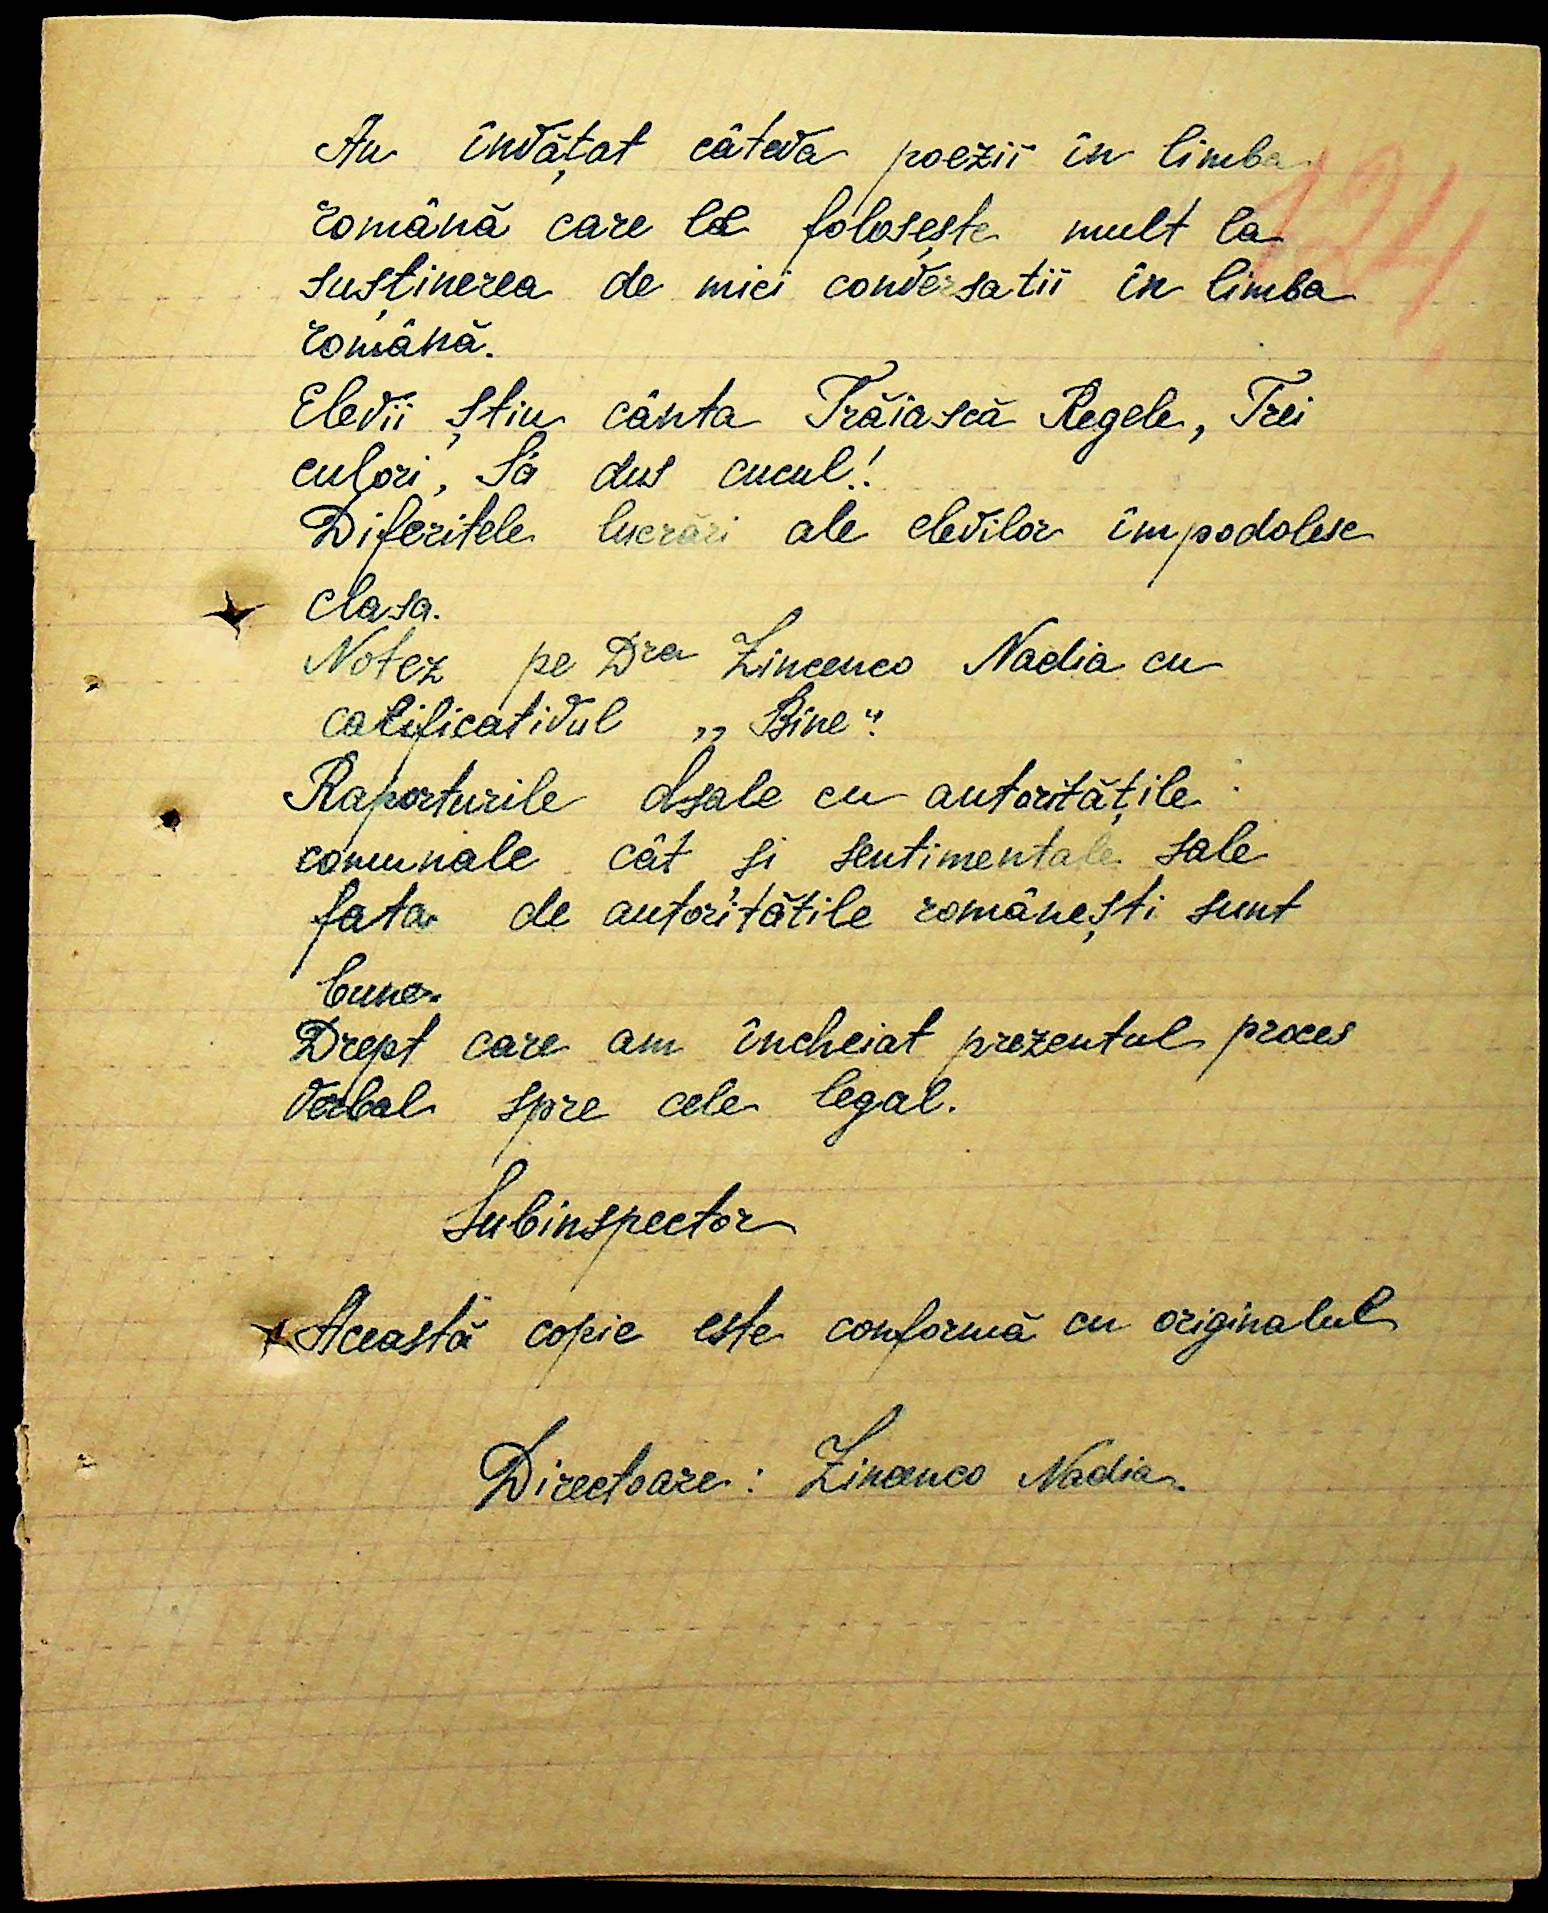 124
Au învățat câteva poezii în limba
română care le folosește mult la
susținerea de mici conversatii în limba
română.
Elevii știu cânta Trăiască Regele, Trei
culori, Sá dus cucul!
Diferitele lucrări ale elevilor împodolesc
clasa.
Notez pe Dra Zincenco Nadia cu
calificativul „Bine".
Raporturile dsale cu autoritățile
comunale cât și sentimentale sale
fata de autoritătile românești sunt
bune.
Drept care am încheiat prezentul proces
verbal spre cele legal.
Subinspector
Această copie este conformă cu originalul
Directoare: Zincenco Nadia.